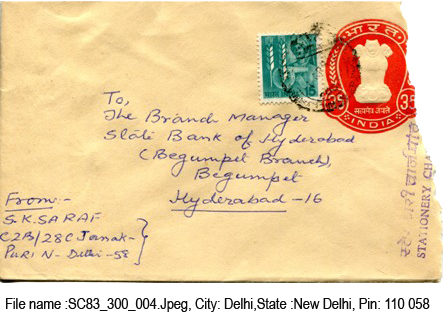 भारत
35 35
सत्यमेव जयते
INDIA
To,
The Branch Manager
State Bank of Hyderabad
(Begumpet Branch),
Begumpet
Hyderabad -16
STATIONERY CHA
From:-
S.K.SARAF
C2B/28C Janak-
PURI N- Delhi-58
File name :SC83_300_004.Jpeg, City: Delhi,State :New Delhi, Pin: 110 058